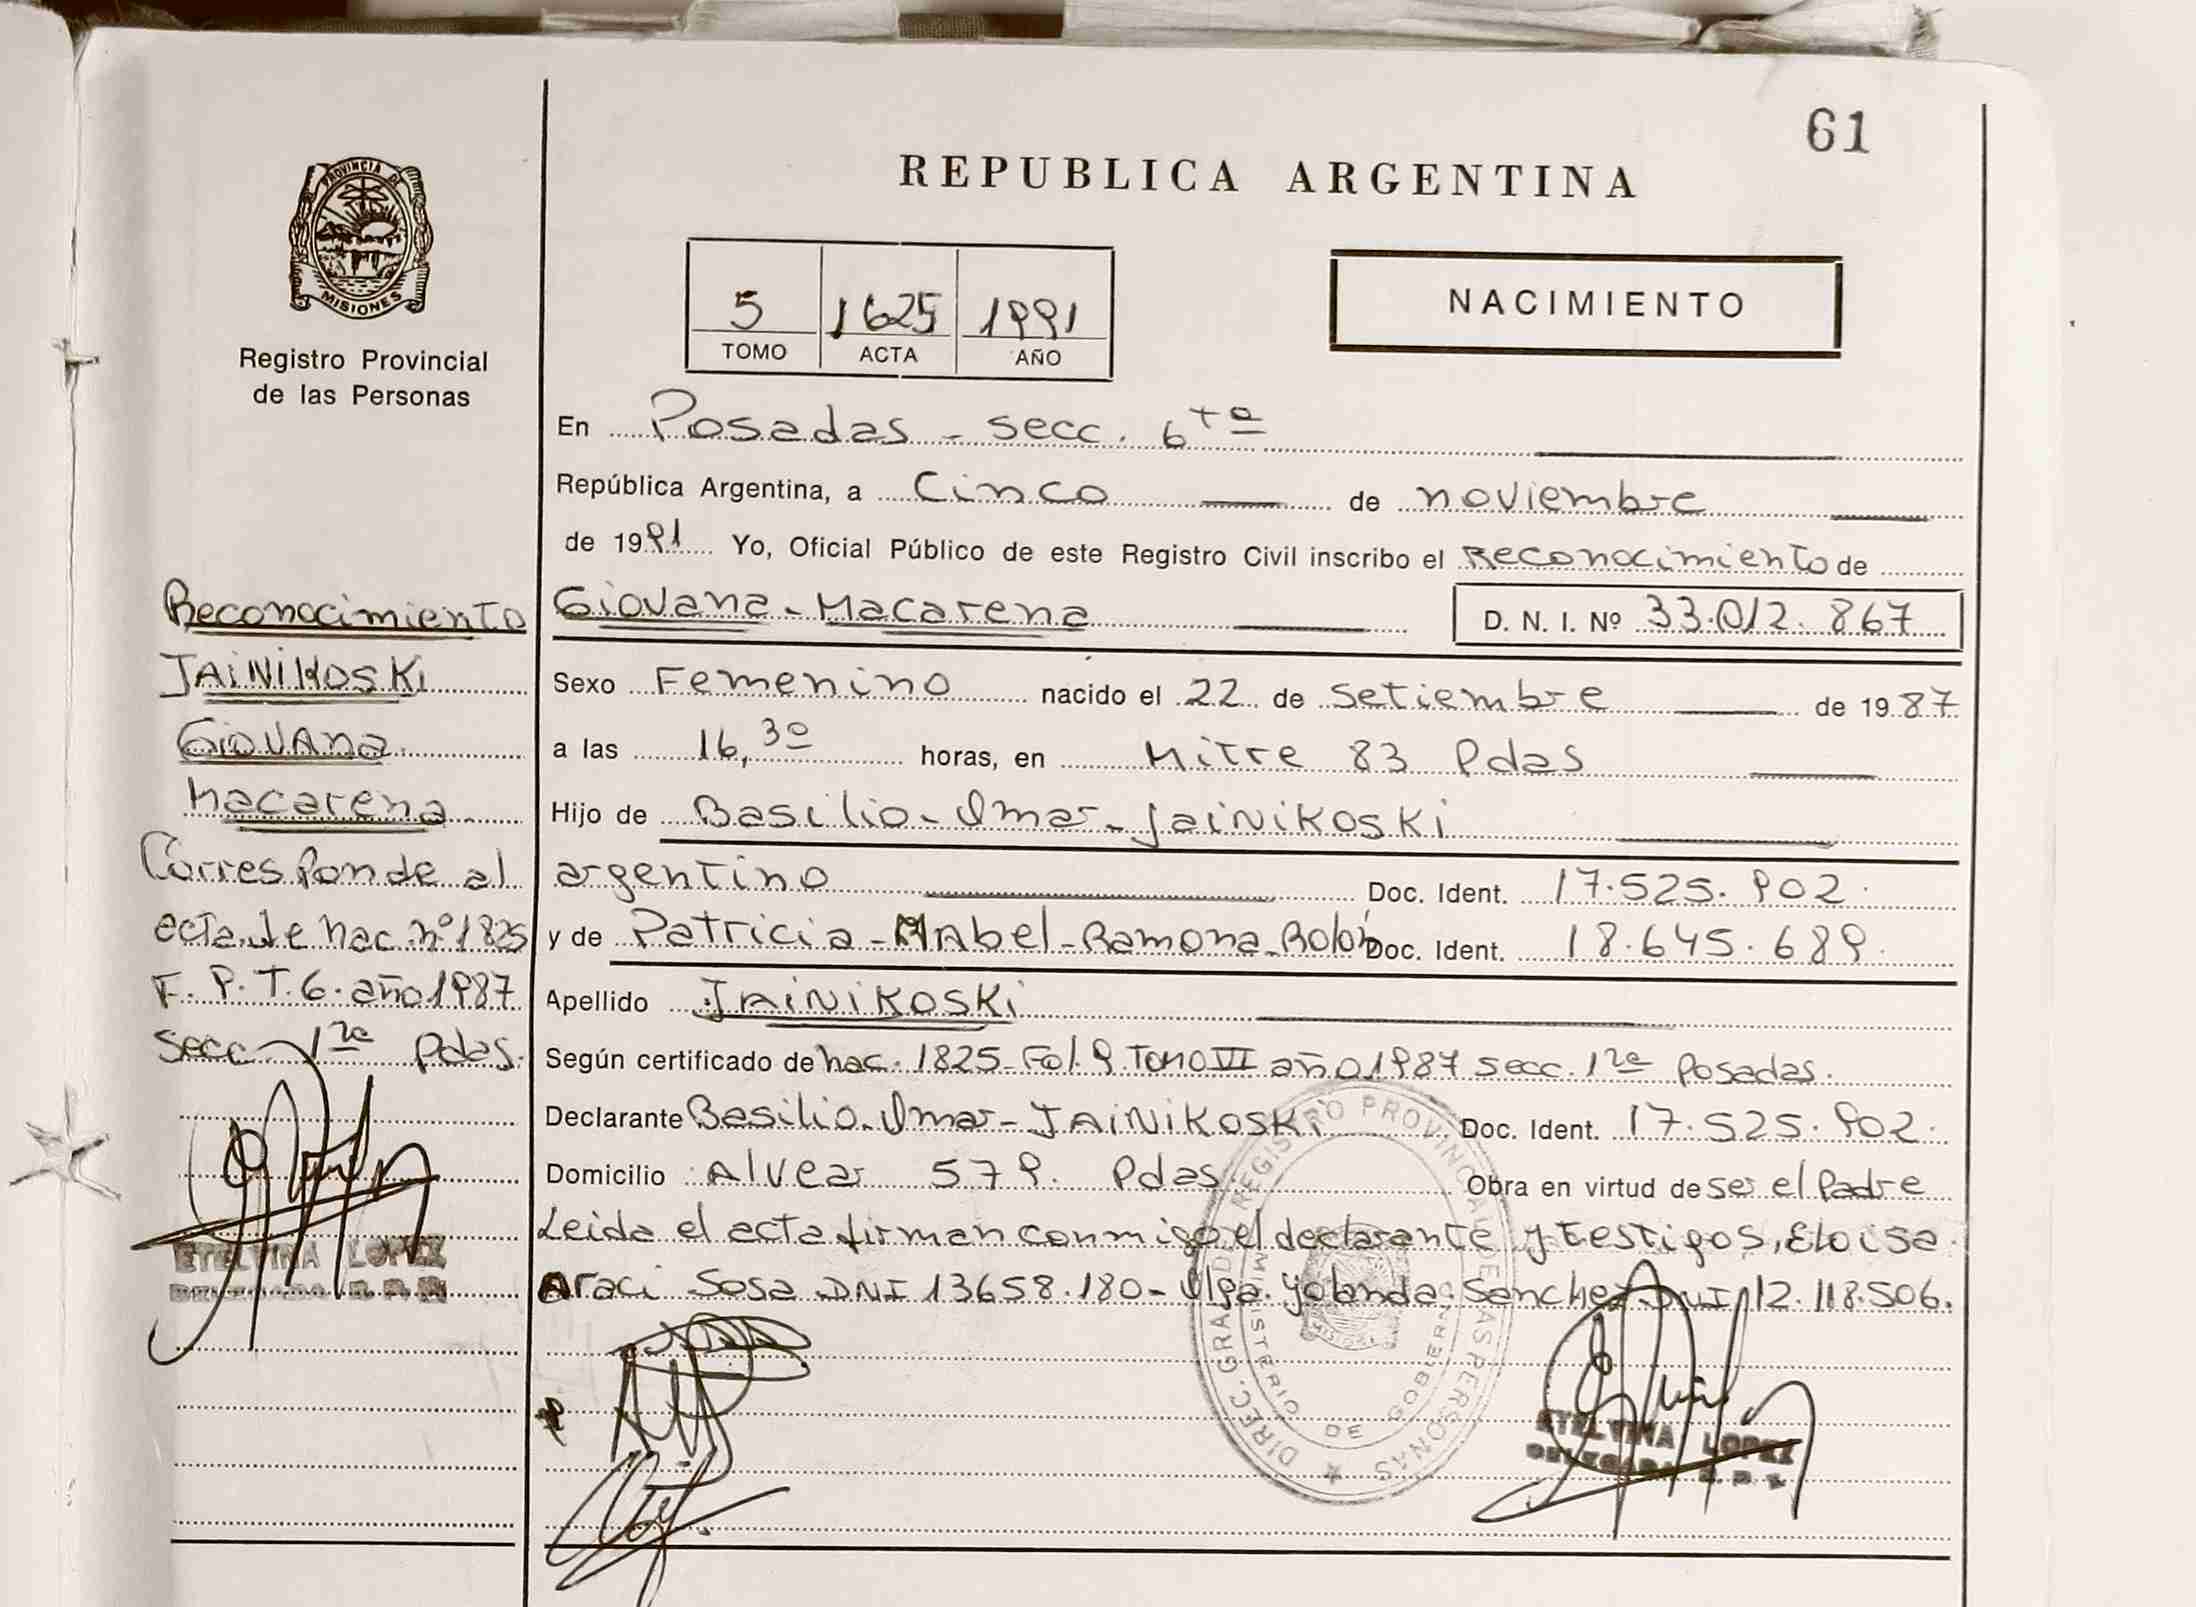 61
REPUBLICA ARGENTINA
PROVINCIA DE
MISIONES
Registro Provincial
de las Personas
5 1625 1991
TOMO ACTA AÑO
NACIMIENTO
En Posadas - secc. 6ta
República Argentina, a Cinco de noviembre
de 1991 Yo, Oficial Público de este Registro Civil inscribo el Reconocimiento de
Giovana - Macarena D. N. I. Nº 33.012.867
Sexo Femenino nacido el 22 de Setiembre de 1987
a las 16,30 horas, en Mitre 83 Pdas
Hijo de Basilio - Omar - Jainikoski
argentino Doc. Ident. 17.525.902.
y de Patricia - Mabel - Ramona - Rolón Doc. Ident. 18.645.689.
Apellido JAiNiKOSKi
Según certificado de nac. 1825 - Fol. 9. Tomo VI año 1987 secc. 1ra Posadas.
Declarante Basilio - Omar - JAiNiKOSKi Doc. Ident. 17.525.902.
Domicilio Alvear 579. Pdas Obra en virtud de ser el Padre
Leida el acta firman conmigo el declarante y testigos, Eloisa
Araci Sosa DNI 13658.180 - Olga Yolanda Sanchez DNI 12.118.506.
Reconocimiento
JAiNiKOSKi
Giovana
Macarena
Corresponde al
acta de nac. nº 1825
F. 9. T. 6. año 1987
secc 1ra Pdas.
ETELVINA LOPEZ
DELEGADA R. P. P.
DIREC. GRAL. DE REGISTRO PROVINCIAL DE LAS PERSONAS
MINISTERIO DE GOBIERNO
MISIONES
ETELVINA LOPEZ
DELEGADA R. P. P.